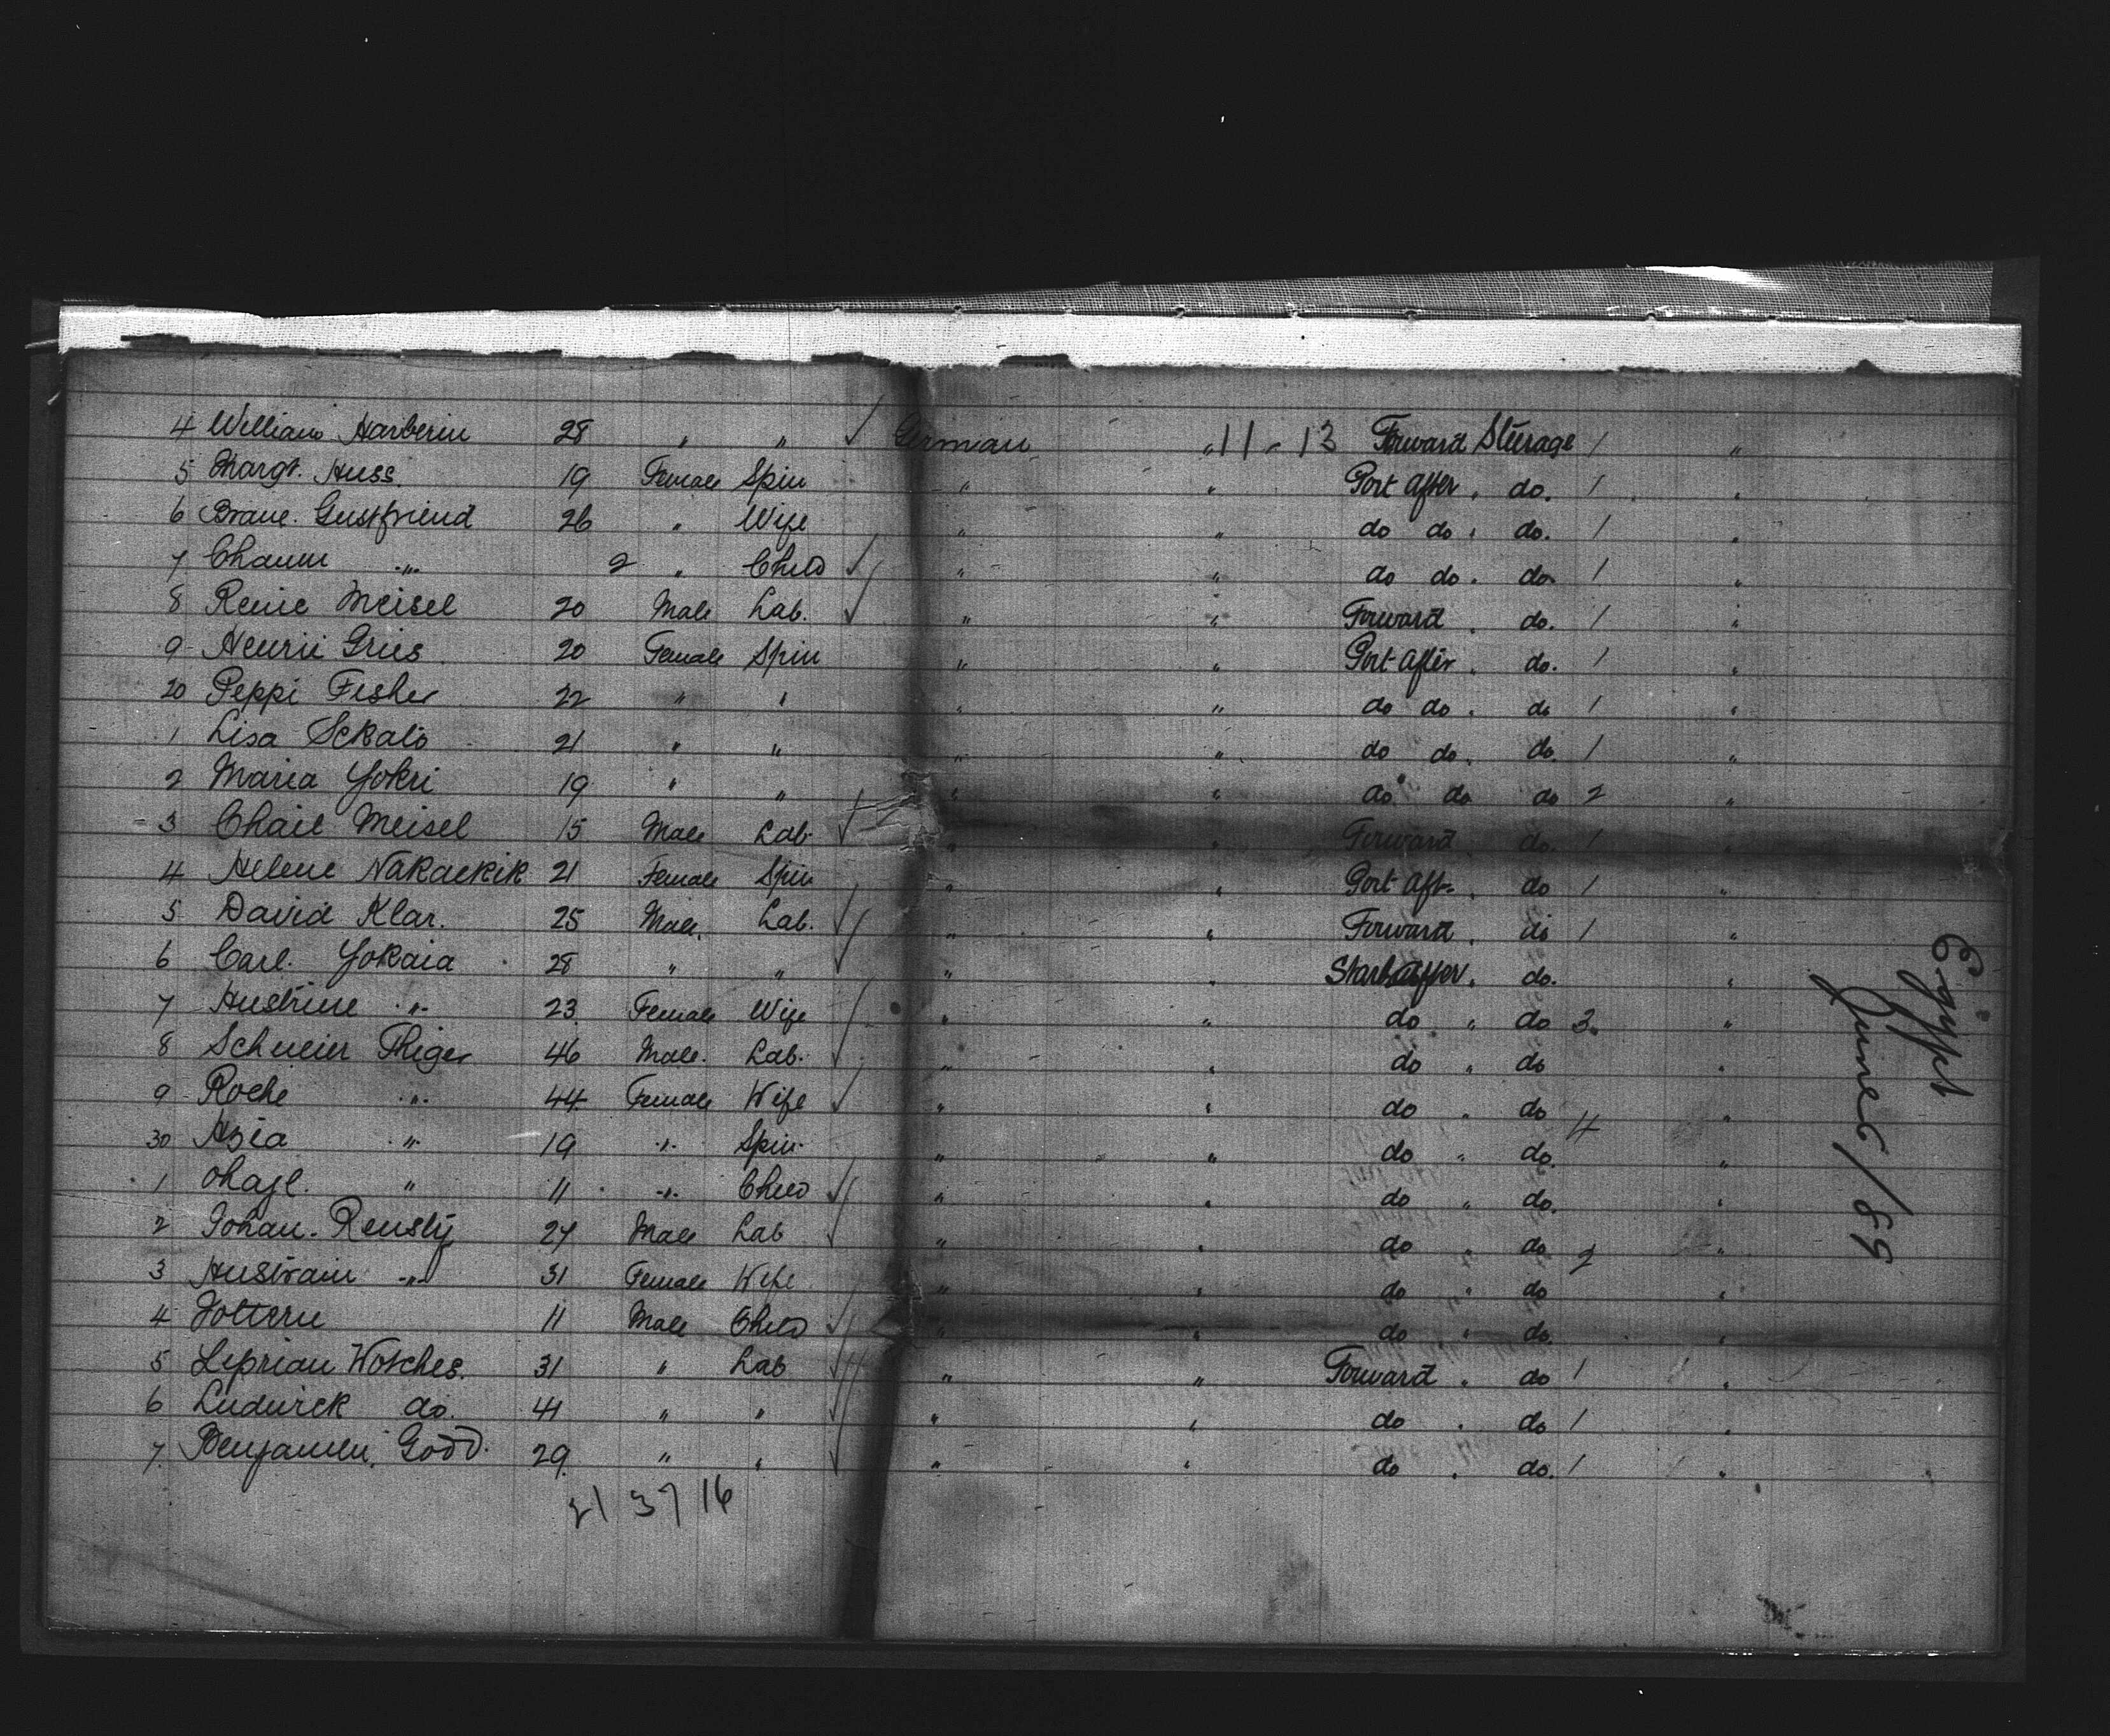 4 William Harberin 28 " " ✓ German " 11 - 13 Forward Steerage 1 "
5 Margt. Huss. 19 Female Spin " " Port After " do. 1 "
6 Brane. Gustfriend 26 " Wife " " do do " do. 1 "
7 Chaim " 2 " Child ✓ " " do do " do. 1 "
8 Renie Meisel 20 Male Lab. ✓ " " Forward " do. 1 "
9 Henrii Gries 20 Female Spin " " Port After " do. 1 "
20 Peppi Fisher 22 " " " " do do " do 1 "
1 Lisa Sckalo 21 " " " " do do " do. 1 "
2 Maria Yokri 19 " " " " do do do 2 "
3 Chail Meisel 15 Male Lab ✓ " " Forward do. 1 "
4 Helene Nakackik 21 Female Spin " " Port Aft. " do 1 "
5 David Klar. 25 Male. Lab. ✓ " " Forward " do 1 "
6 Carl. Yokaia 28 " " ✓ " " Starb after " do. "
7 " 23 Female Wife ✓ " " do " do 3. "
8 Schueier Thiger 46 Male. Lab. ✓ " " do " do "
9 Roche " 44 Female Wife ✓ " " do " do "
30 Asia " 19 " Spin " " do " do. 4 "
1 Chajl. " 11 " Child ✓ " " do " do. "
2 Johan. Rensty 27 Male Lab ✓ " " do " do 2 "
3 " 31 Female Wife " " do " do "
4 11 Male Child ✓ " " do " do. "
5 Leprian Wotches. 31 " Lab ✓ " " Forward " do 1 "
6 Ludwick do. 41 " " ✓ " " do " do 1 "
7. Benjamin. Godd. 29. " " ✓ " " do " do. 1 "
21 37 16
Egypt
June 6/89